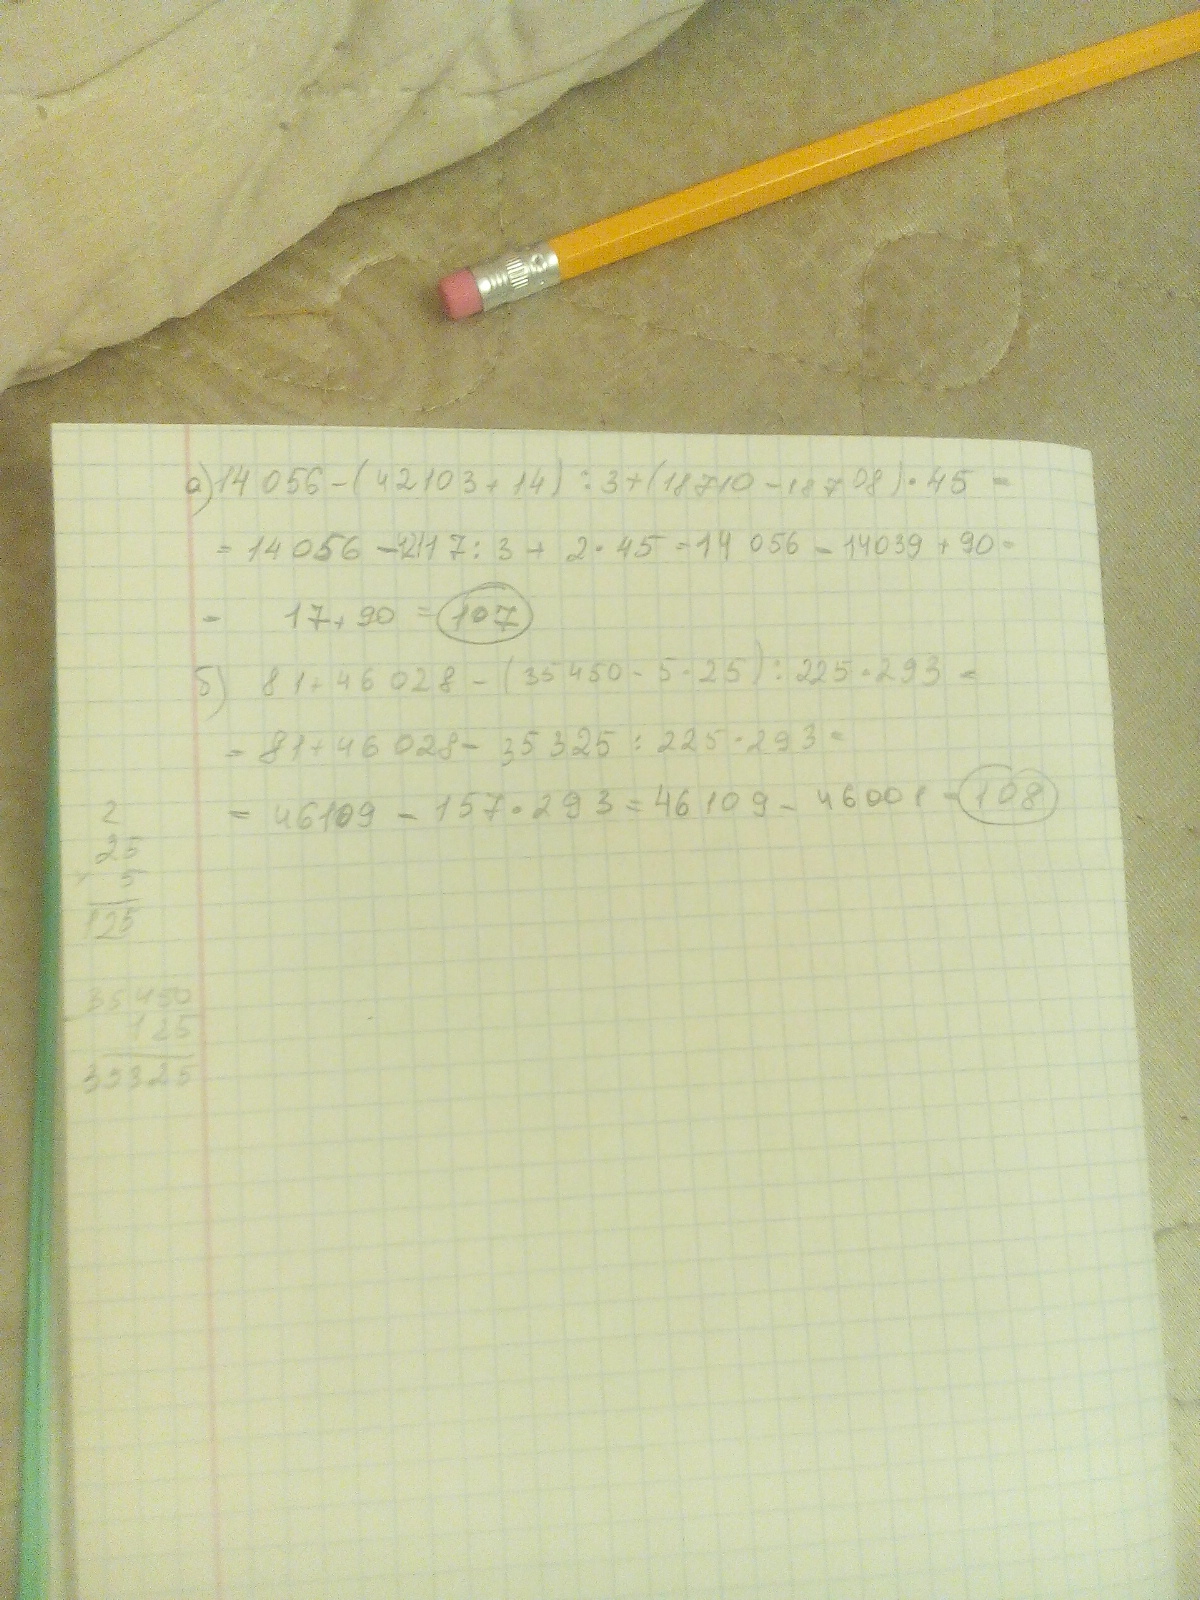 а) 14 056 - (42103 + 14) : 3 + (18710 - 18708) · 45 =
= 14 056 - 42117 : 3 + 2 · 45 = 14 056 - 14039 + 90 =
= 17 + 90 = 107
б) 81 + 46 028 - (35450 - 5 · 25) : 225 · 293 =
= 81 + 46 028 - 35325 : 225 · 293 =
= 46109 - 157 · 293 = 46109 - 46001 = 108
2
25
× 5
125
35450
125
35325